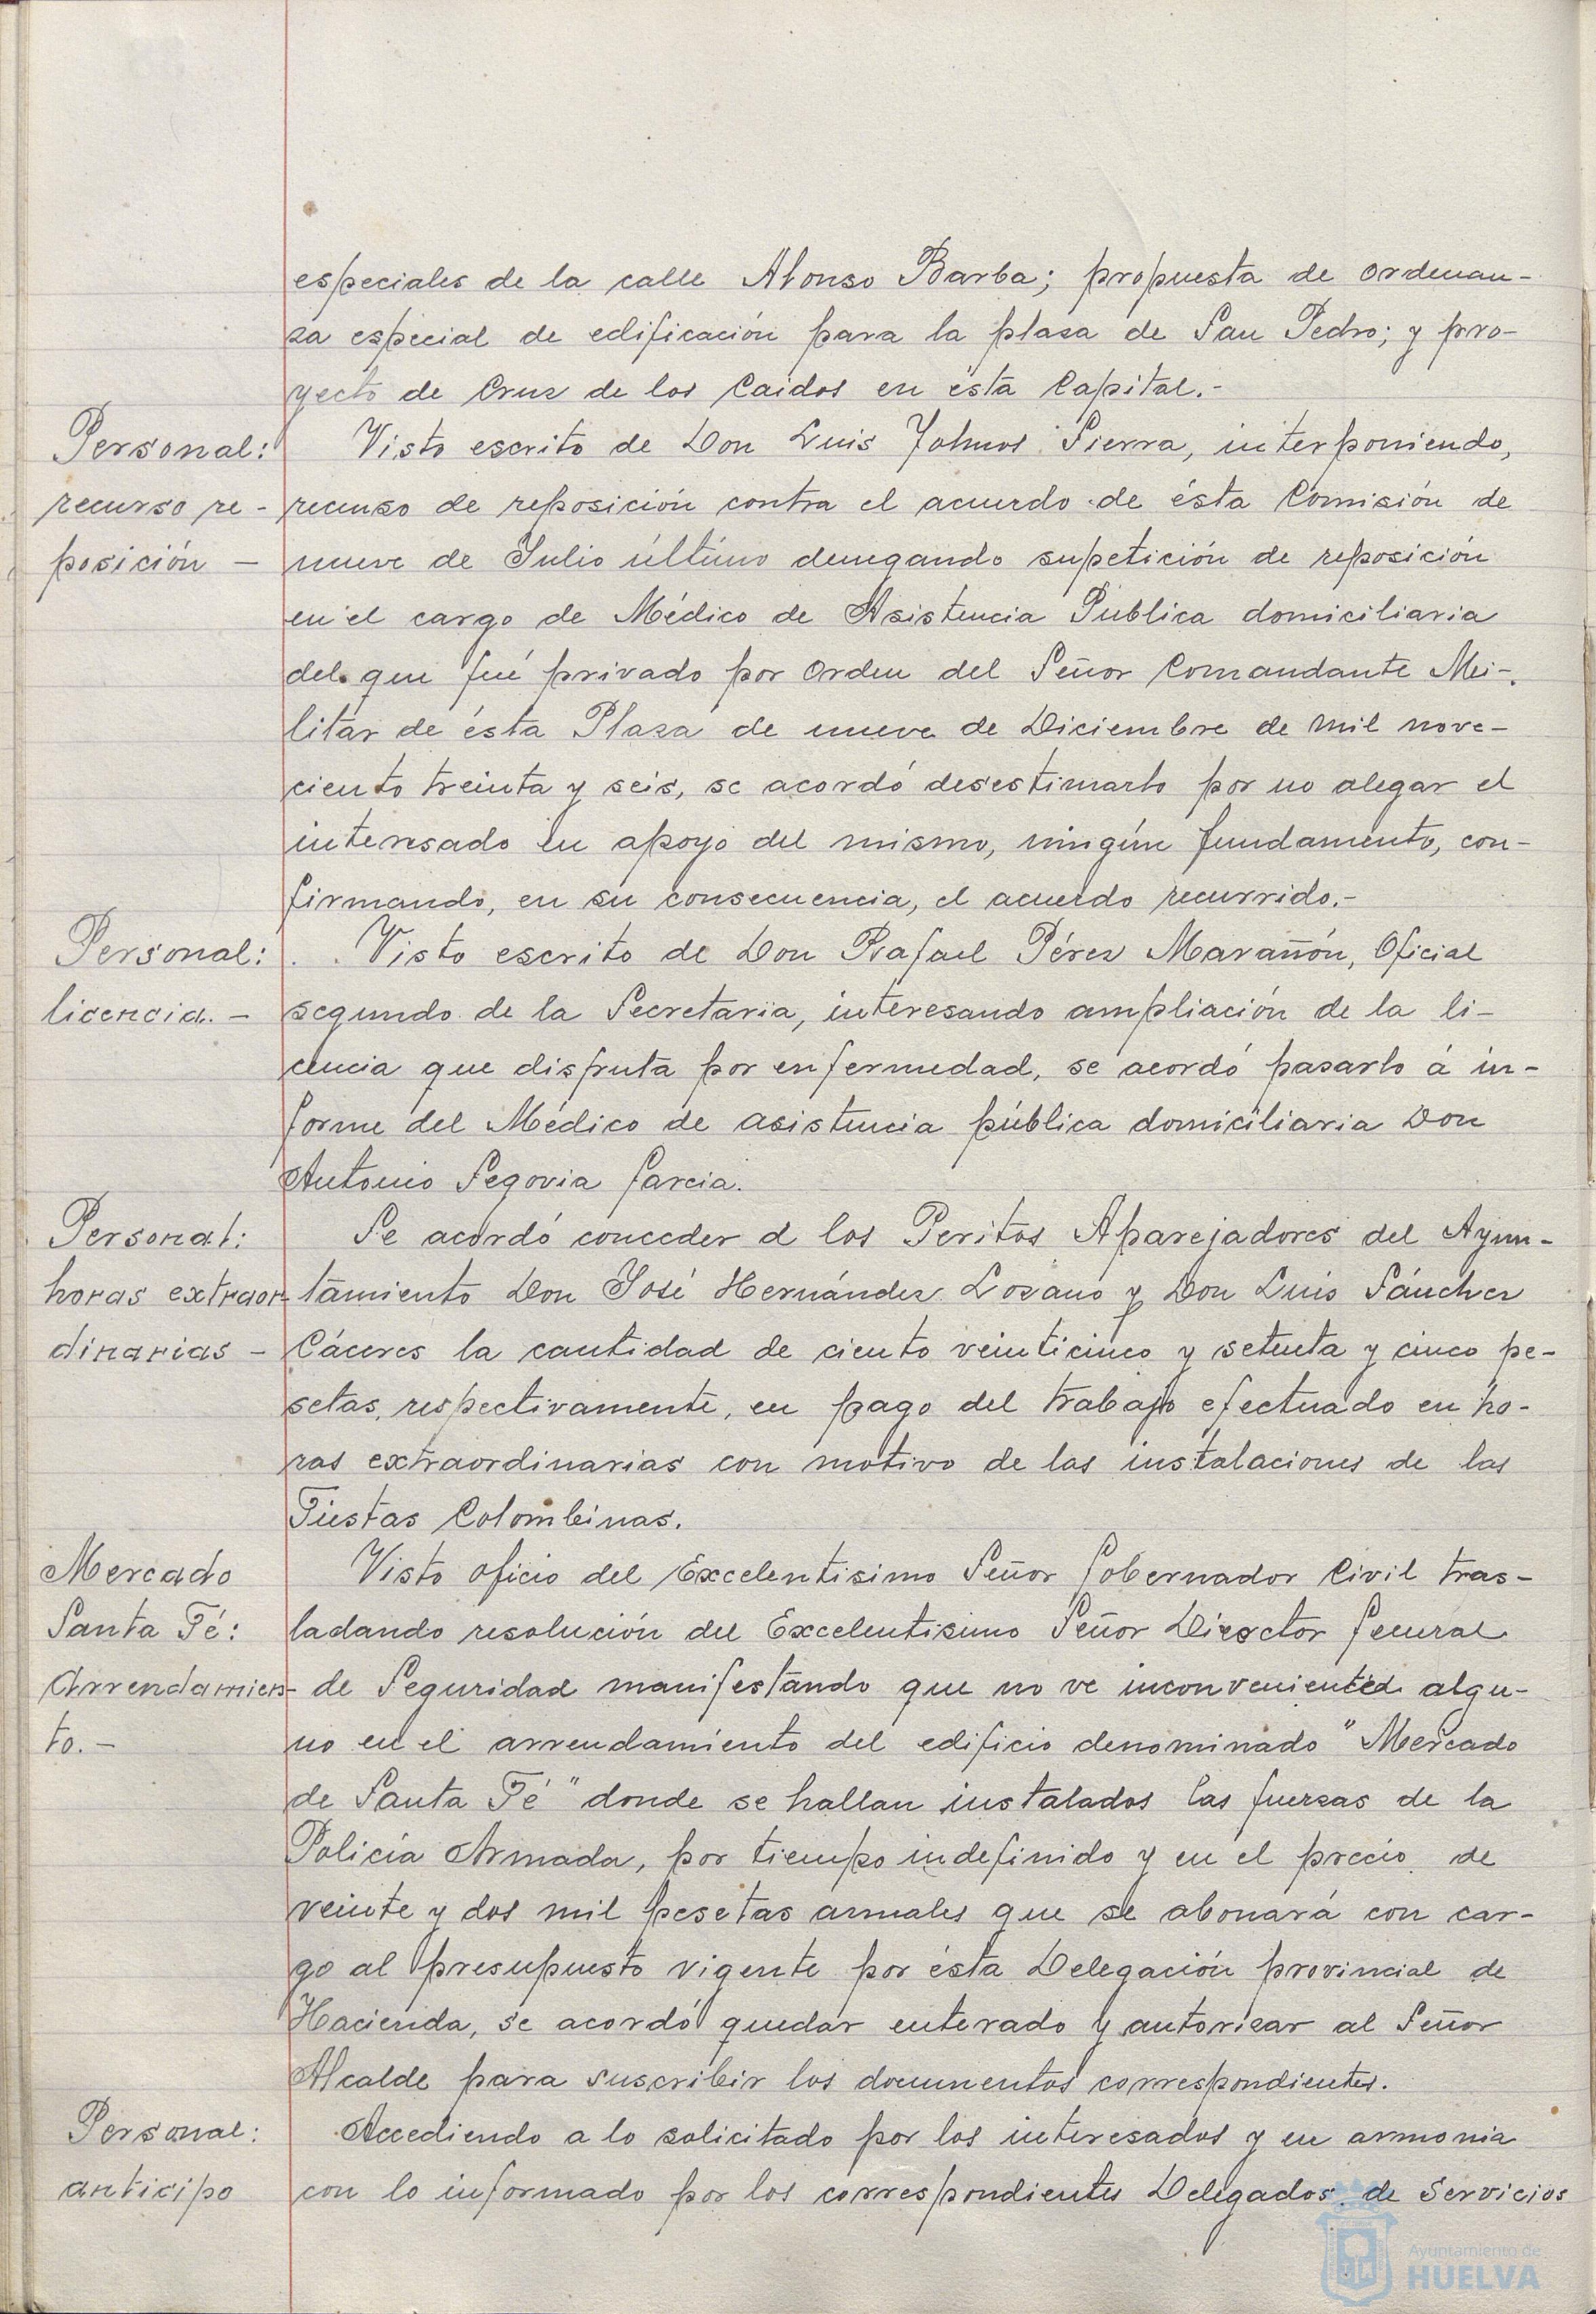 especiales de la calle Alonso Barba; propuesta de ordenan-
za especial de edificación para la plaza de San Pedro; y pro-
yecto de Cruz de los Caidos en ésta Capital.-
Personal:
recurso re-
posición -
Visto escrito de Don Luis Sierra, interponiendo,
recurso de reposición contra el acuerdo de ésta Comisión de
nueve de Julio último denegando supetición de reposición
en el cargo de Médico de Asistencia Publica domiciliaria
del que fué privado por Orden del Señor Comandante Mi-
litar de ésta Plaza de nueve de Diciembre de mil nove-
ciento treinta y seis, se acordó desestimarlo por no alegar el
interesado en apoyo del mismo, ningún fundamento, con-
firmando, en su consecuencia, el acuerdo recurrido.-
Personal:
licencia.-
Visto escrito de Don Rafael Pérez Marañón, Oficial
segundo de la Secretaria, interesando ampliación de la li-
cencia que disfruta por enfermedad, se acordó pasarlo á in-
forme del Médico de asistencia pública domiciliaria Don
Antonio Segovia Garcia.
Personal:
horas extraor-
dinarias -
Se acordó conceder a los Peritos Aparejadores del Ayun-
tamiento Don José Hernández Lozano y Don Luis Sánchez
Cáceres la cantidad de ciento veinticinco y setenta y cinco pe-
setas, respectivamente, en pago del trabajo efectuado en ho-
ras extraordinarias con motivo de las instalaciones de las
Fiestas Colombinas.
Mercado
Santa Fé:
Arrendamien-
to.-
Visto oficio del Excelentisimo Señor Gobernador Civil tras-
ladando resolución del Excelentisimo Señor Director General
de Seguridad manifestando que no ve algu-
no en el arrendamiento del edificio denominado "Mercado
de Santa Fé" donde se hallan instalados las fuerzas de la
Policía Armada, por tiempo indefinido y en el precio de
veinte y dos mil pesetas anuales que se abonará con car-
go al presupuesto vigente por ésta Delegación provincial de
Hacienda, se acordó quedar enterado y autorizar al Señor
Alcalde para suscribir los documentos correspondientes.
Personal:
anticipo
Accediendo a lo solicitado por los interesados y en armonia
con lo informado por los correspondientes Delegados de Servicios
Ayuntamiento de
HUELVA